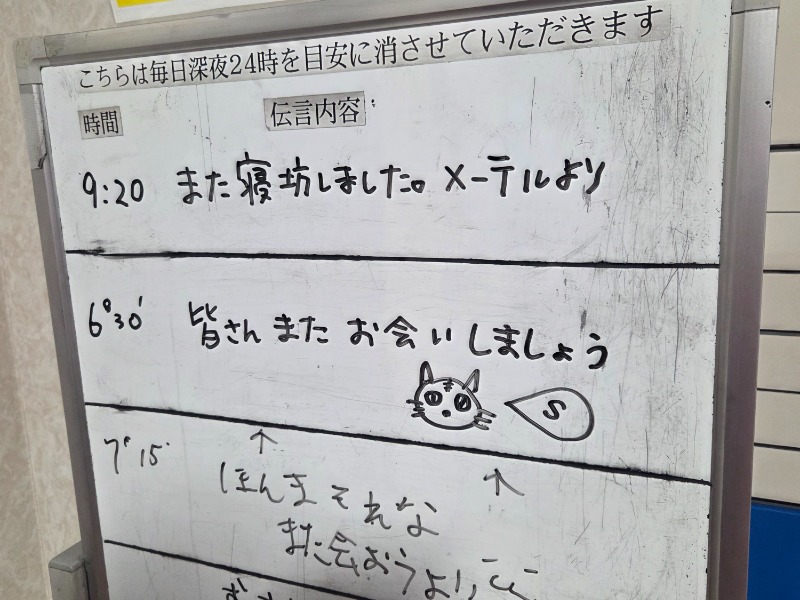 こちらは毎日深夜24時を目安に消させていただきます
時間 伝言内容
9:20 また寝坊しました。メーテルより
6°30′ 皆さん また お会いしましょう
S
7°15′ ↑ ↑
ほんまそれな
また会おうより